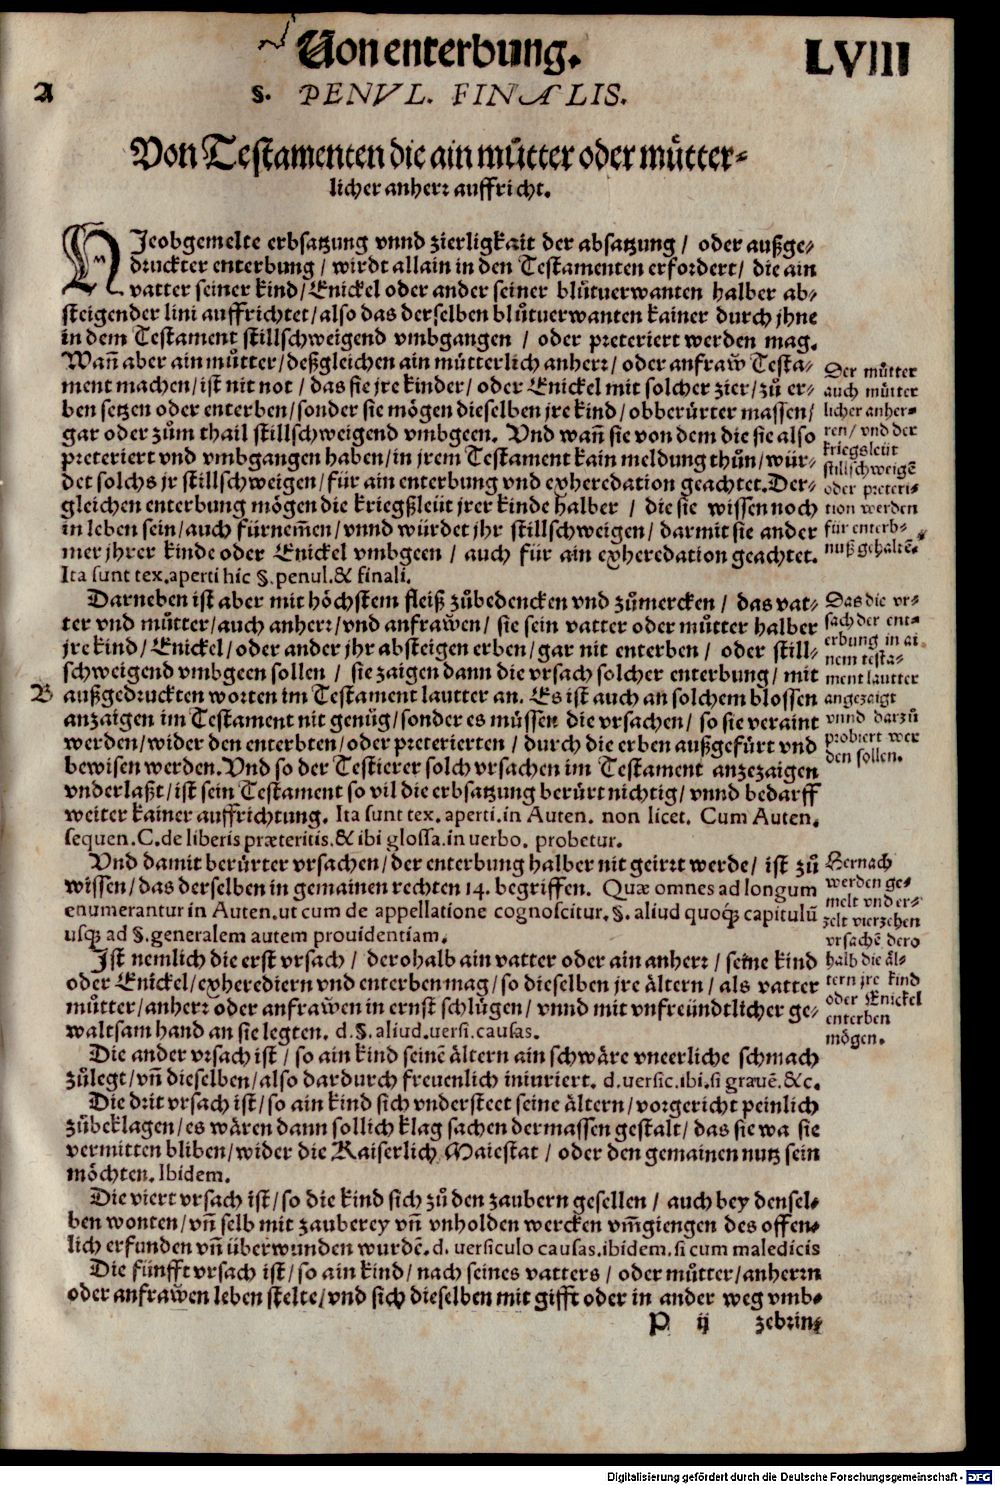 Von enterbung.
LVIII
A
§. PENVL. FINALIS.
Von Testamenten die ain můtter oder můtter-
licher anherr auffricht.
DJeobgemelte erbsatzung vnnd zierligkait der absatzung / oder außge-
druckter enterbung / wirdt allain in den Testamenten erfordert / die ain
vatter seiner kind / Enickel oder ander seiner blůtuerwanten halber ab-
steigender lini auffrichtet / also das derselben blůtuerwanten kainer durch jhne
in dem Testament stillschweigend vmbgangen / oder preteriert werden mag.
Wañ aber ain můtter / deßgleichen ain můtterlich anherr / oder anfraw̃ Testa-
ment machen / ist nit not / das sie jre kinder / oder Enickel mit solcher zier / zů er-
ben setzen oder enterben / sonder sie mögen dieselben jre kind / obberůrter massen /
gar oder zům thail stillschweigend vmbgeen. Vnd wañ sie von dem die sie also
preteriert vnd vmbgangen haben / in jrem Testament kain meldung thůn / wür-
det solchs jr stillschweigen / für ain enterbung vnd exheredation geachtet. Der-
gleichen enterbung mögen die kriegßleüt jrer kinde halber / die sie wissen noch
in leben sein / auch fürnem̃en / vnnd würdet jhr stillschweigen / darmit sie ander
mer jhrer kinde oder Enickel vmbgeen / auch für ain exheredation geachtet.
Ita sunt tex. aperti hic §. penul. & finali.
Der můtter
auch můtter
licher anher-
ren / vnd der
kriegsleüt
stillschweigẽ
oder preteri-
tion werden
für enterb-
nuß gehaltẽ.
Darneben ist aber mit höchstem fleiß zůbedencken vnd zůmercken / das vat-
ter vnd můtter / auch anherr / vnd anfraw̃en / sie sein vatter oder můtter halber
jre kind / Enickel / oder ander jhr absteigen erben / gar nit enterben / oder still-
schweigend vmbgeen sollen / sie zaigen dann die vrsach solcher enterbung / mit
B
außgedruckten worten im Testament lautter an. Es ist auch an solchem blossen
anzaigen im Testament nit genůg / sonder es müssen die vrsachen / so sie veraint
werden / wider den enterbten / oder preterierten / durch die erben außgefürt vnd
bewisen werden. Vnd so der Testierer solch vrsachen im Testament anzezaigen
vnderlaßt / ist sein Testament so vil die erbsatzung berůrt nichtig / vnnd bedarff
weiter kainer auffrichtung. Ita sunt tex. aperti. in Auten. non licet. Cum Auten.
sequen. C. de liberis præteritis. & ibi glossa. in verbo. probetur.
Das die vr-
sach der ent-
erbung in ai
nem testa-
ment lautter
angezaigt
vnnd darzů
probiert wer
den sollen.
Vnd damit berůrter vrsachen / der enterbung halber nit geirrt werde / ist zů
wissen / das derselben in gemainen rechten 14. begriffen. Quæ omnes ad longum
enumerantur in Auten. ut cum de appellatione cognoscitur. §. aliud quoq; capitulũ
usq; ad §. generalem autem prouidentiam.
Hernach
werden ge-
melt vnd er-
zelt vierzehen
vrsachẽ dero
halb die äl-
tern jre kind
oder Enickel
enterben
mögen.
Ist nemlich die erst vrsach / derohalb ain vatter oder ain anherr / seine kind
oder Enickel / exherediern vnd enterben mag / so dieselben jre ältern / als vatter
můtter / anherr oder anfraw̃en in ernst schlůgen / vnnd mit vnfreündtlicher ge-
waltsam hand an sie legten. d. §. aliud. versi. causas.
Die ander vrsach ist / so ain kind seinẽ ältern ain schwäre vneerliche schmach
zůlegt / vñ dieselben / also dardurch freuenlich iniuriert. d. versic. ibi. si grauẽ. &c.
Die drit vrsach ist / so ain kind sich vndersteet seine ältern / vorgericht peinlich
zůbeklagen / es wären dann sollich klag sachen dermassen gestalt / das sie wa sie
vermitten bliben / wider die Kaiserlich Maiestat / oder den gemainen nutz sein
möchten. Ibidem.
Die viert vrsach ist / so die kind sich zů den zaubern gesellen / auch bey densel-
ben wonten / vñ selb mit zauberey vñ vnholden wercken vm̃giengen des offen-
lich erfunden vñ überwunden wurdẽ. d. versiculo causas. ibidem. si cum maledicis
Die fünfft vrsach ist / so ain kind / nach seines vatters / oder můtter / anherrn
oder anfraw̃en leben stelte / vnd sich dieselben mit gifft oder in ander weg vmb-
P ij
zebrin-
Digitalisierung gefördert durch die Deutsche Forschungsgemeinschaft - DFG